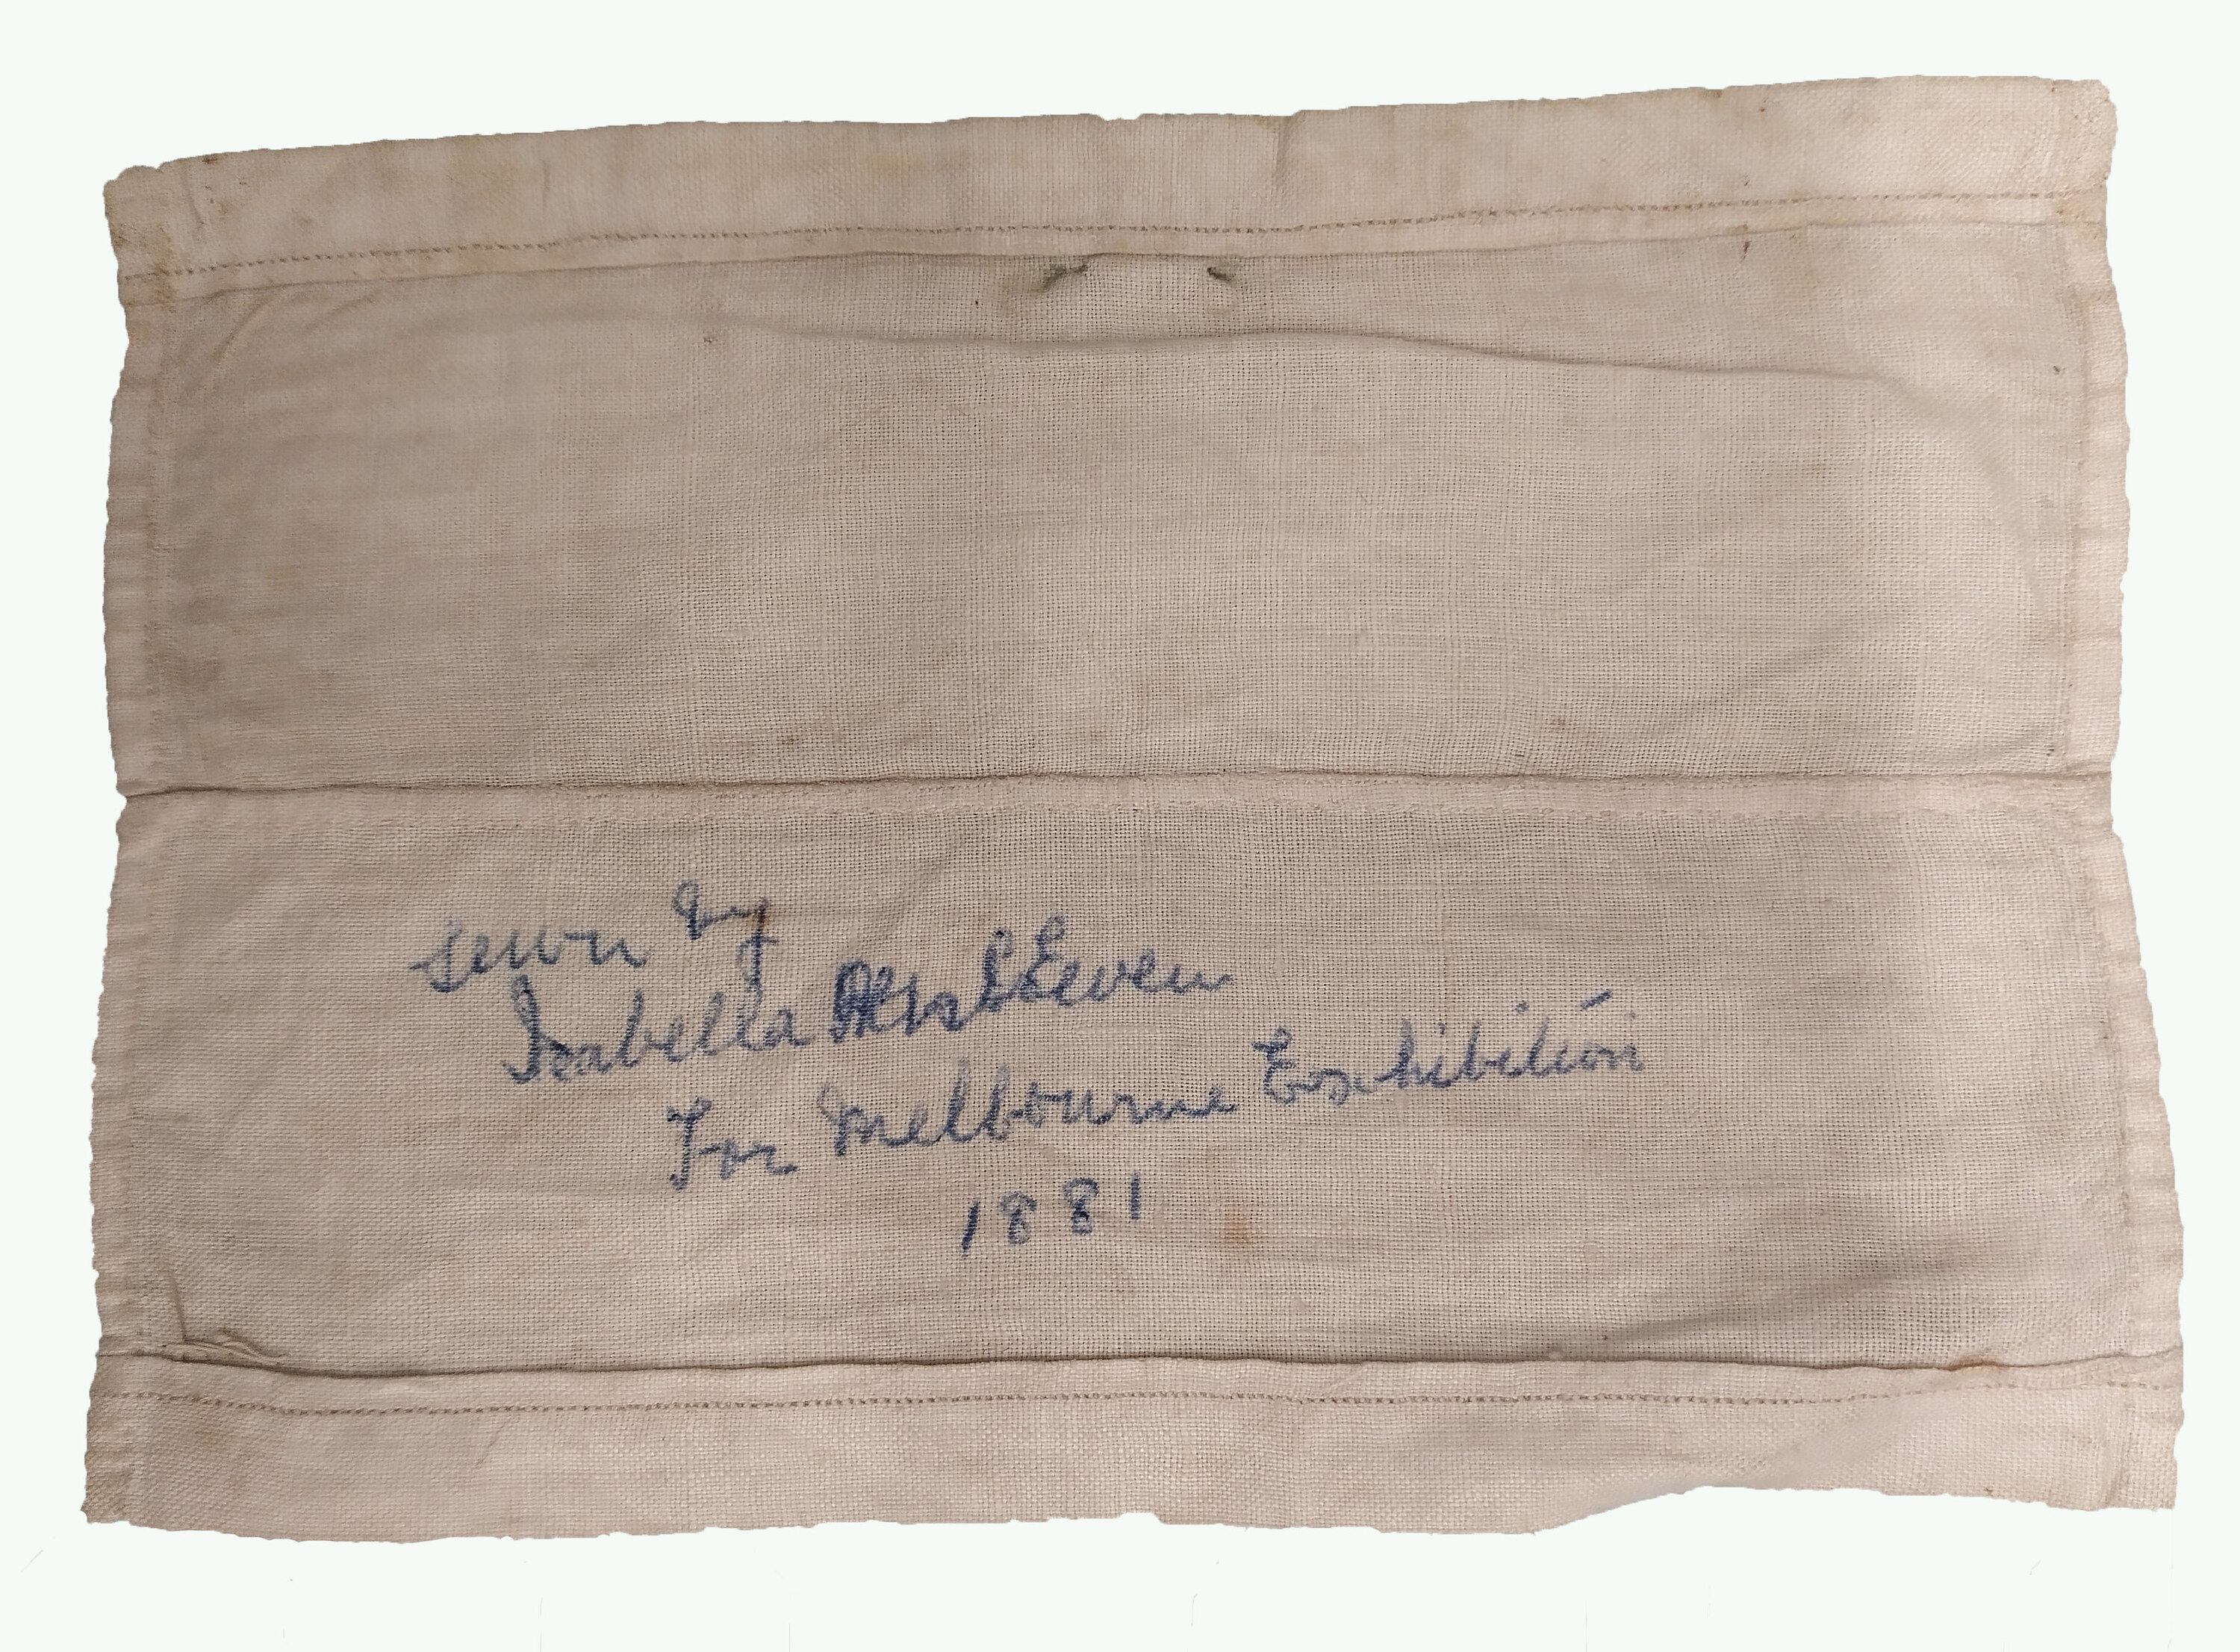 Sewn by
Isabella
For Melbourne Exhibition
1881